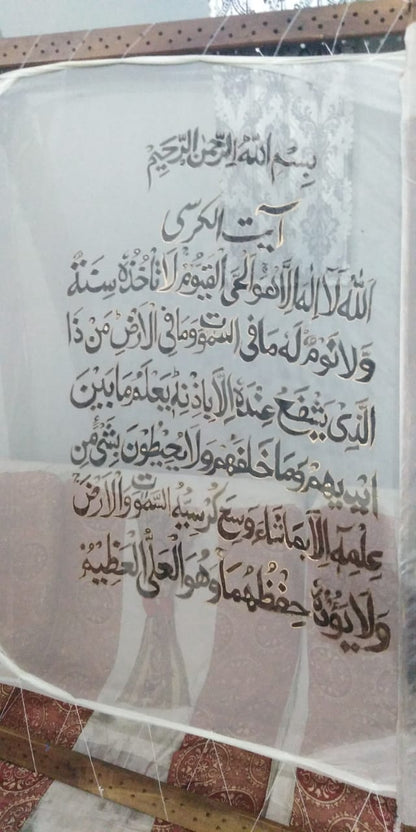 بِسْمِ اللّٰهِ الرَّحْمٰنِ الرَّحِيْمِ
آيت الكرسى
اَللّٰهُ لَآ اِلٰهَ اِلَّا هُوَ الْحَىُّ الْقَيُّوْمُ لَا تَاْخُذُهٗ سِنَةٌ
وَّلَا نَوْمٌ لَهٗ مَا فِى السَّمٰوٰتِ وَمَا فِى الْاَرْضِ مَنْ ذَا
الَّذِىْ يَشْفَعُ عِنْدَهٗٓ اِلَّا بِاِذْنِهٖ يَعْلَمُ مَا بَيْنَ
اَيْدِيْهِمْ وَمَا خَلْفَهُمْ وَلَا يُحِيْطُوْنَ بِشَىْءٍ مِّنْ
عِلْمِهٖٓ اِلَّا بِمَا شَآءَ وَسِعَ كُرْسِيُّهُ السَّمٰوٰتِ وَالْاَرْضَ
وَلَا يَـُٔوْدُهٗ حِفْظُهُمَا وَهُوَ الْعَلِىُّ الْعَظِيْمُ